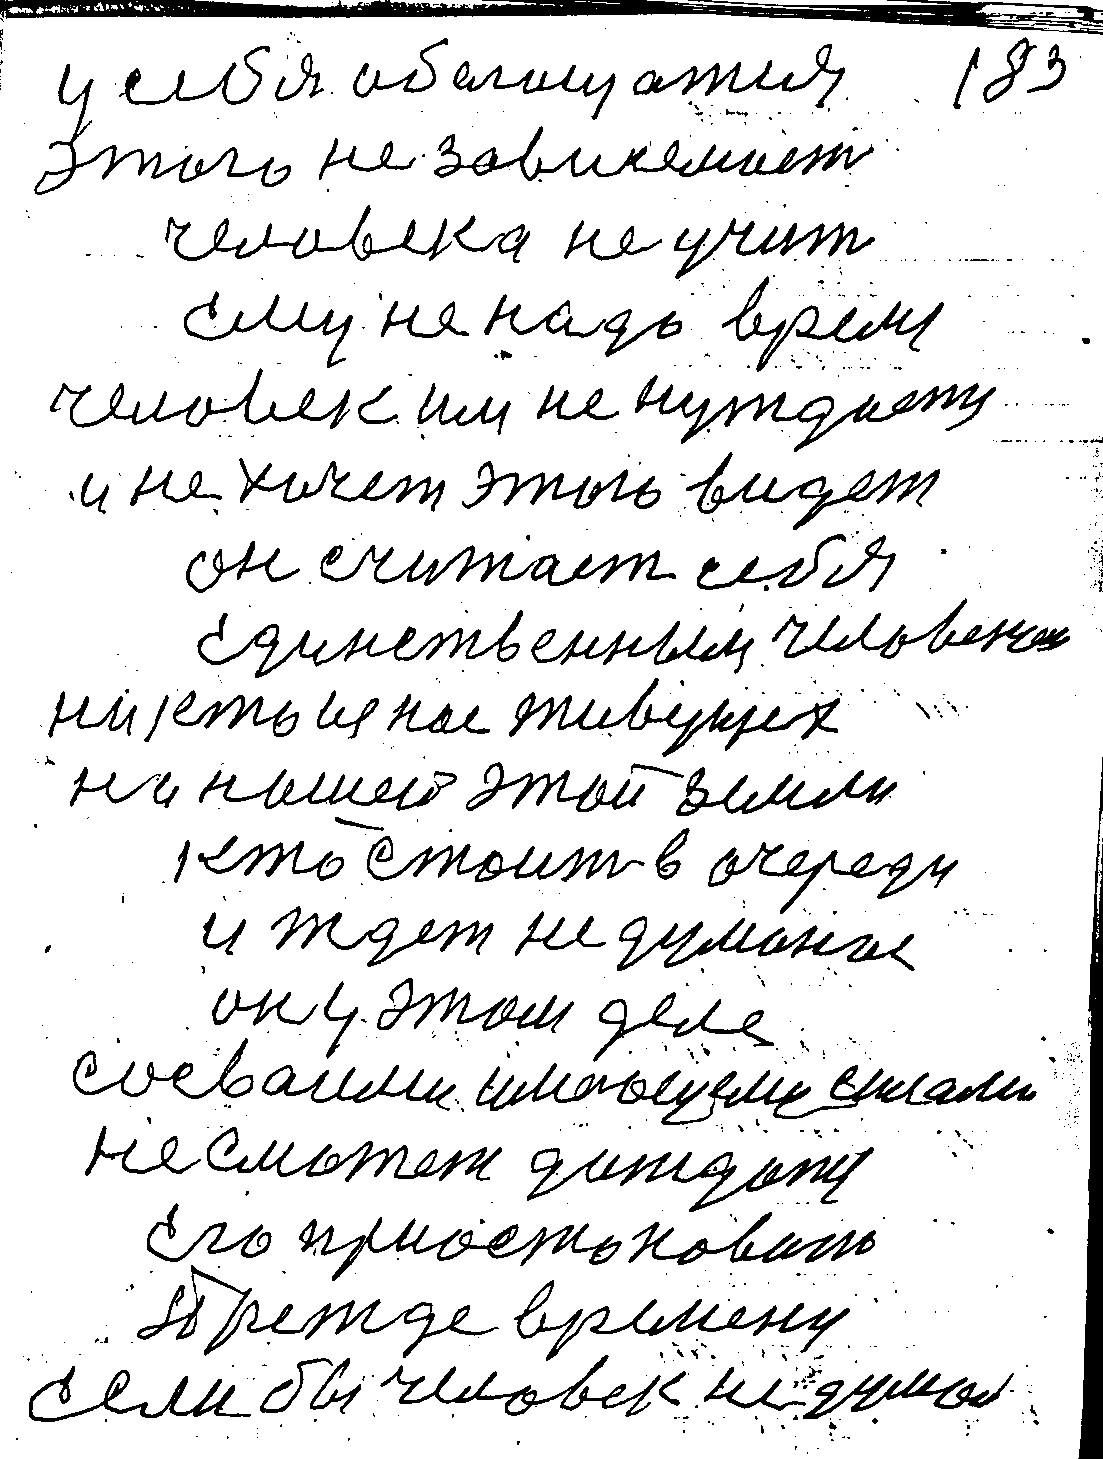 у себя обагощатия 183
этого не зависемост
человека не учит
ему не надо время
человек им не нуждаетц
и не хочет этого видет
он считает себя
единственным человеком
никто из нас живущих
на нашей этой земли
кто стоит в очереди
и ждет не думоное
он у этом деле
своеваими силами
не сможет дождатц
его приостоновить
прежде времену
если бы человек не думал